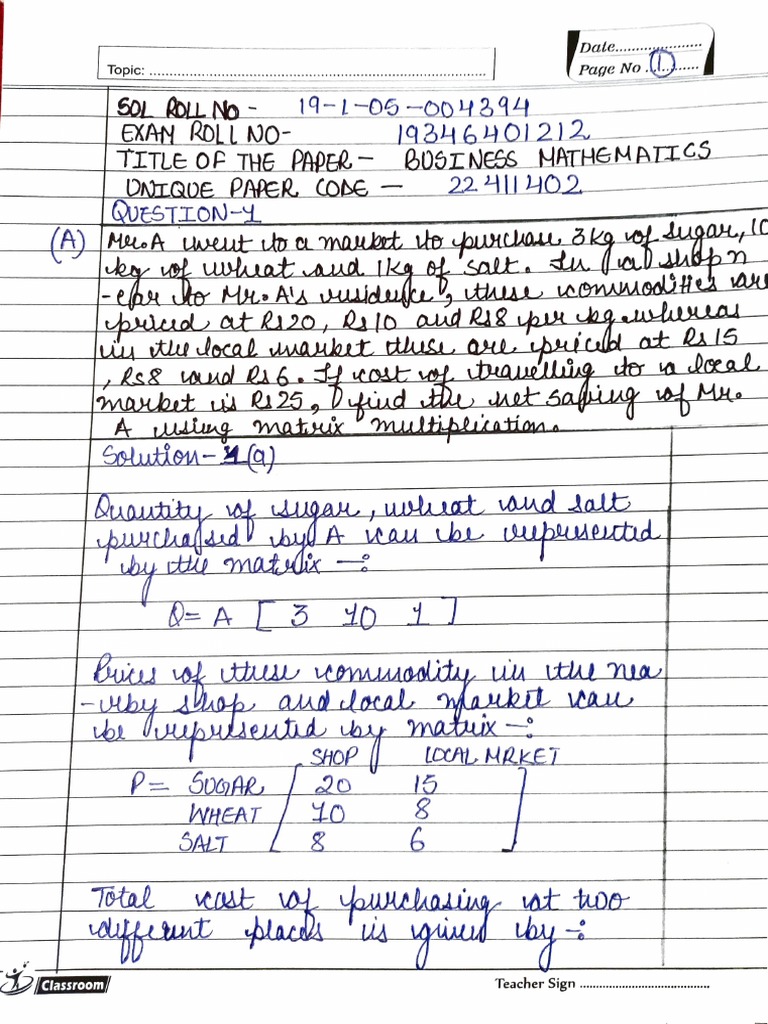 Topic: ................................................
Date....................
Page No ..1..........
SOL ROLL NO - 19-1-05-004394
EXAM ROLL NO- 19346401212
TITLE OF THE PAPER - BUSINESS MATHEMATICS
UNIQUE PAPER CODE - 22411402
QUESTION-1
(A) Mr. A went to a market to purchase 3kg of sugar, 10
kg of wheat and 1kg of salt. In a shop n
-ear to Mr. A's residence, these commodities are
priced at Rs20, Rs10 and Rs8 per kg whereas
in the local market these are priced at Rs15
, Rs8 and Rs6. If cost of travelling to a local
market is Rs25, find the net saving of Mr.
A using matrix multiplication.
Solution-1(a)
Quantity of sugar, wheat and salt
purchased by A can be represented
by the matrix -:
Q= A [ 3 10 1 ]
Prices of these commodity in the nea
-rby shop and local market can
be represented by matrix -:
SHOP LOCAL MRKET
P= SUGAR 20 15
WHEAT 10 8
SALT 8 6
Total cost of purchasing at two
different places is given by -:
Classroom
Teacher Sign ........................................